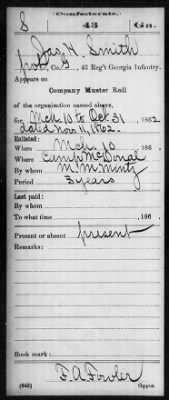 (Confederate.)
S 43 Ga.
Jas. H. Smith
Co. , 43 Reg't Georgia Infantry.
Appears on
Company Muster Roll
of the organization named above,
for Mch. 10 to Oct 31, 1862
dated Nov. 11, 1862.
Enlisted:
When Mch. 10, 186 .
Where Camp McDonal
By whom M. M. Mintz
Period 3 years
Last paid:
By whom
To what time , 186 .
Present or absent present
Remarks:
Book mark:
F. A. Fowler
(642) Copyist.